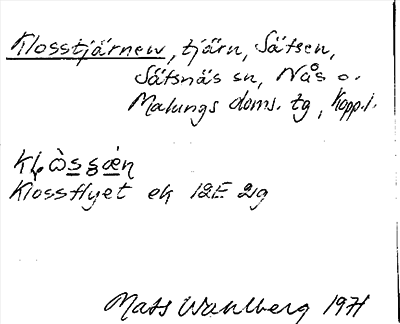 Klosstjärnen, tjärn, Sätsen,
Säfsnäs sn, Nås o.
Malungs doms. tg, Kopp. l.
Klossflyet ek 12E 2g
Mats Wahlberg 1971